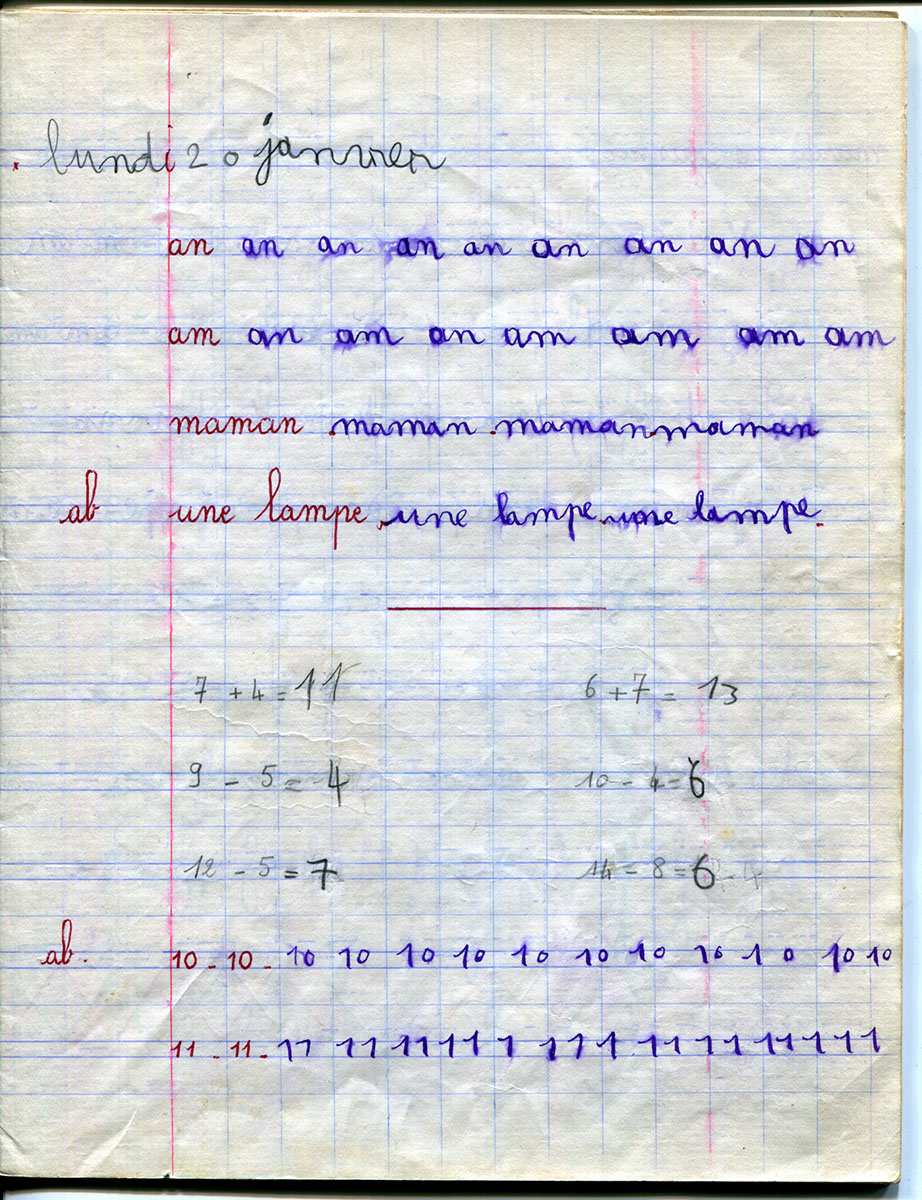 lundi 20 janvier
an an an an an an an an an
am an am an am am am am
maman maman maman maman
ab une lampe une lampe une lampe.
7 + 4 = 11 6 + 7 = 13
9 - 5 = 4 10 - 4 = 6
12 - 5 = 7 14 - 8 = 6
ab. 10 - 10 - 10 10 10 10 10 10 10 10 10 10 10
11 - 11 - 11 11 11 11 1 11 1 11 11 11 1 11